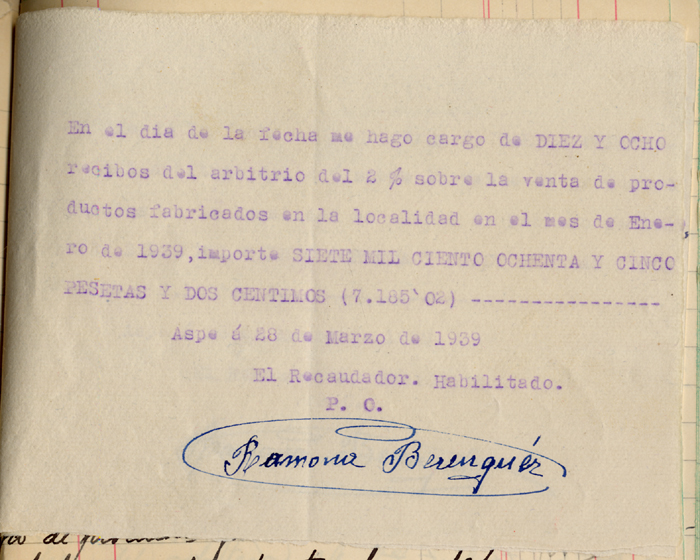 En el dia de la fecha me hago cargo de DIEZ Y OCHO
recibos del arbitrio del 2 % sobre la venta de pro-
ductos fabricados en la localidad en el mes de Ene-
ro de 1939, importe SIETE MIL CIENTO OCHENTA Y CINCO
PESETAS Y DOS CENTIMOS (7.185'02) ----------------
Aspe á 28 de Marzo de 1939
El Recaudador. Habilitado.
P. O.
Ramona Berenguér